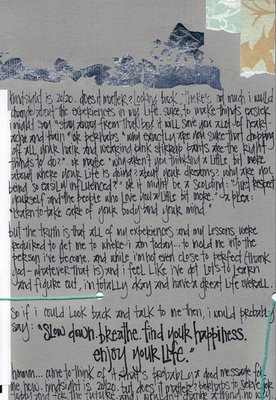 hindsight is 20/20. does it matter? looking back, there's not much i would
change about the experiences in my life. sure, to make things easier
i might say "stay away from that boy. he will save you a lot of heart-
ache and pain." or perhaps, "why exactly are you sure that chopping
off all your hair and wearing pink stirrup pants are the right
things to do?" or maybe "why aren't you thinking a little bit more
about where your life is going? about your dreams? why are you
being so easily influenced?" or it might be a scolding: "just respect
yourself and the people who love you a little bit more." a plea:
"learn to take care of your body and your mind."
but the truth is that all of my experiences and my lessons were
required to get me to where i am today... to mold me into the
person i've become. and while i'm not even close to perfect (thank
god - whatever that is) and i feel like i've got lots to learn
and figure out, i'm totally okay and have a great life overall.
so if i could look back and talk to me then, i would probably
say: "slow down. breathe. find your happiness.
enjoy your life."
hmmm... come to think of it that's probably a good message for
me now. hindsight is 20/20. but does it matter? perhaps to serve